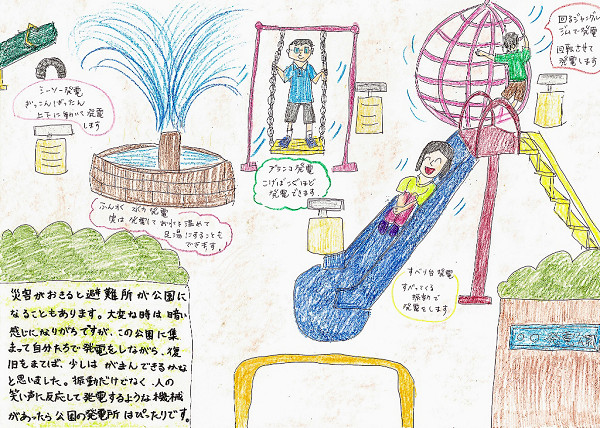 シーソー発電
ぎっこんばったん
上下に動いて発電
します
ブランコ発電
こげばこぐほど
発電できます。
回るジャングル
ジムで発電
回転させて
発電します
ふんすい 水力発電
実は発電して お水を温めて
足湯にすることも
できます
すべり台発電
すべってくる
振動で
発電をします
災害がおきると避難所が公園に
なることもあります。大変な時は暗い
感じになりがちですが、この公園に集
まって自分たちで発電をしながら、復
旧をまてば、少しは がまんできるかな
と思いました。振動だけでなく 人の
笑い声に反応して発電するような機械
があったら公園の発電所はぴったりです。